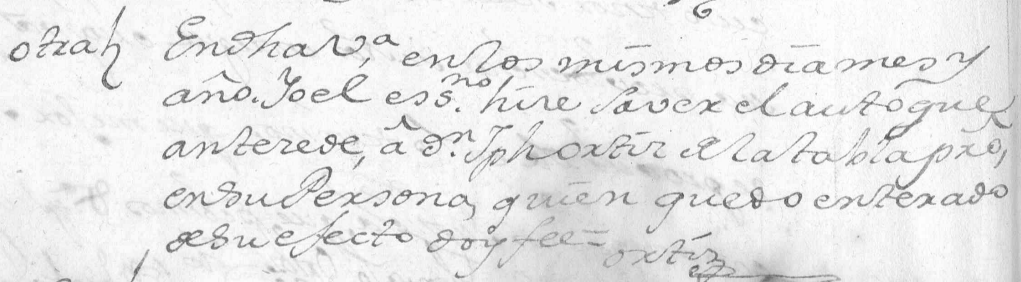 otra En dha v.ª en los mismos dia mes y
año. Yo el ess.no hize saver el auto que
antezede, â Dn. Jph ortiz de la tabla pro,
en su Persona, quien quedo enterado
de su efecto doy fee=
ortiz